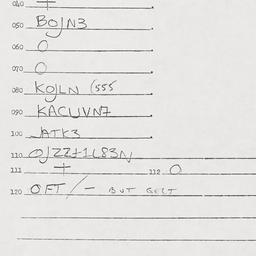 040 +
050 BOJN3
060 O
070 O
080 KOJLN (555
090 KACLIVN7
100 JATK3
110 OJZZ+1L83N
111 + 112 O
120 OFT/- BUT GELT